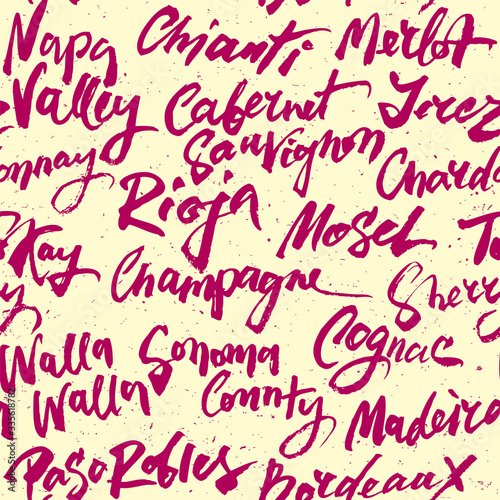 Napa Chianti Merlot
Valley Cabernet Jerez
onnay Sauvignon Chardo
Rioja Mosel To
kay Champagne Sherry
y
Walla Sonoma Cognac
Walla County Madeira
Paso Robles Bordeaux
Adobe Stock
335618782